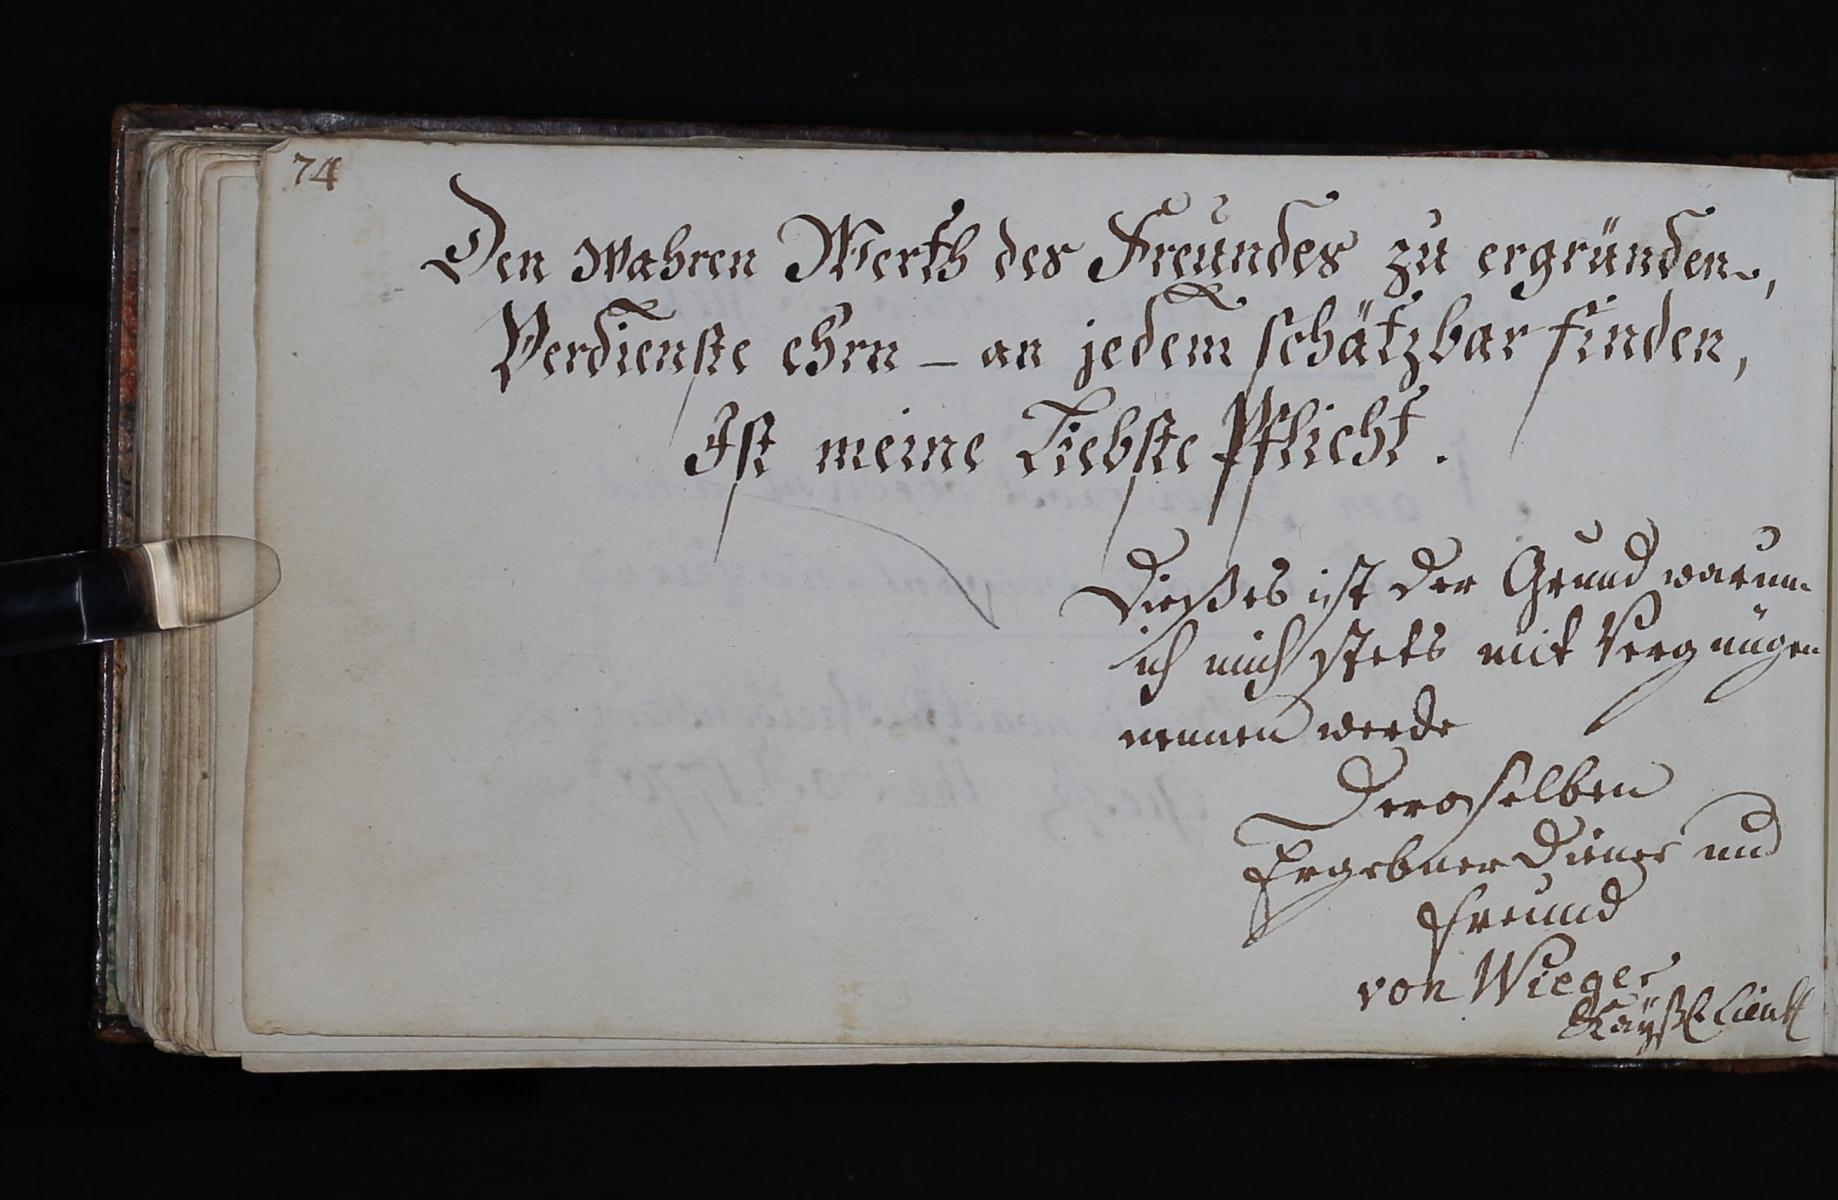 74
Den wahren Werth des Freundes zu ergründen,
Verdienste ehrn – an jedem schätzbar finden,
Ist meine Liebste Pflicht.
Dießes ist der Grund warum
ich mich stets mit Vergnügen
nennen werde
Deroselben
Ergebner Diener und
Freund
von Wieger